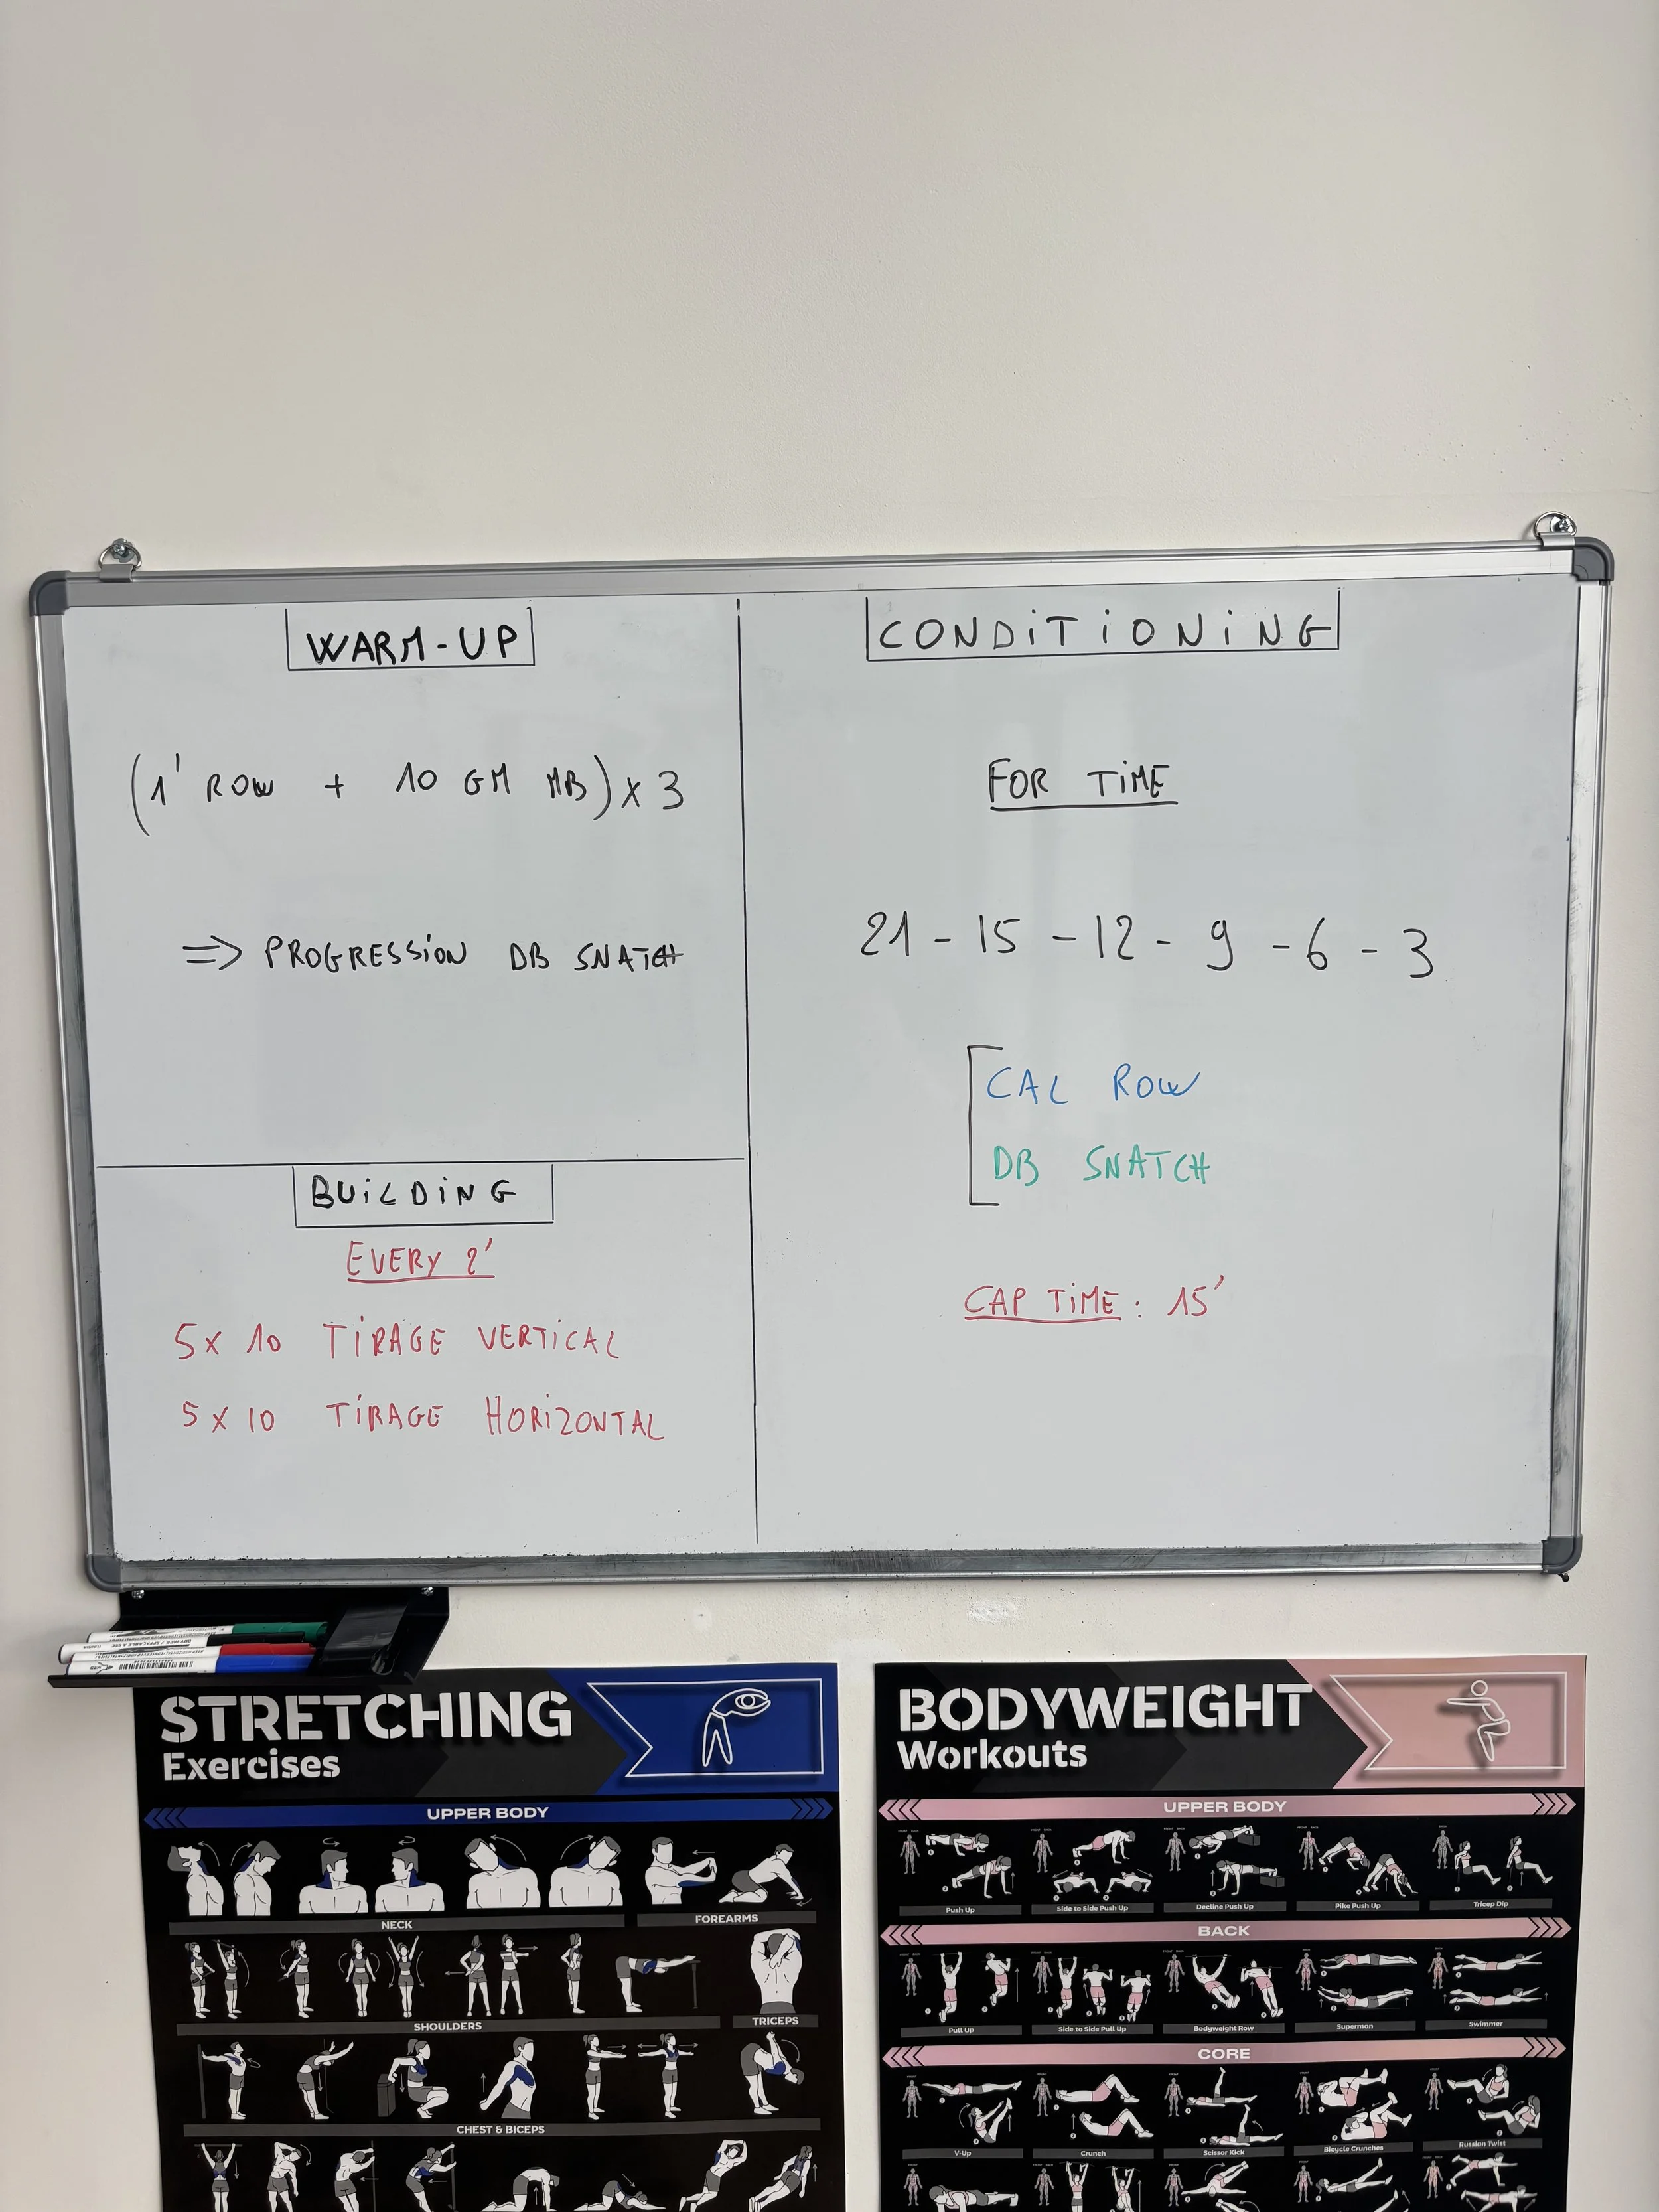 WARM-UP
(1' ROW + 10 GM MB) x 3
=> PROGRESSION DB SNATCH
BUiLDiNG
EVERY 2'
5x 10 TiRAGE VERTiCAL
5 x 10 TiRAGE HORiZONTAL
CONDiTiONiNG
FOR TiME
21 - 15 - 12 - 9 - 6 - 3
CAL ROW
DB SNATCH
CAP TiME : 15'
STRETCHING
Exercises
UPPER BODY
NECK
FOREARMS
SHOULDERS
TRICEPS
CHEST & BICEPS
BODYWEIGHT
Workouts
UPPER BODY
Push Up
Side to Side Push Up
Decline Push Up
Pike Push Up
Tricep Dip
BACK
Pull Up
Side to Side Pull Up
Bodyweight Row
Superman
Swimmer
CORE
V-Up
Crunch
Scissor Kick
Bicycle Crunches
Russian Twist